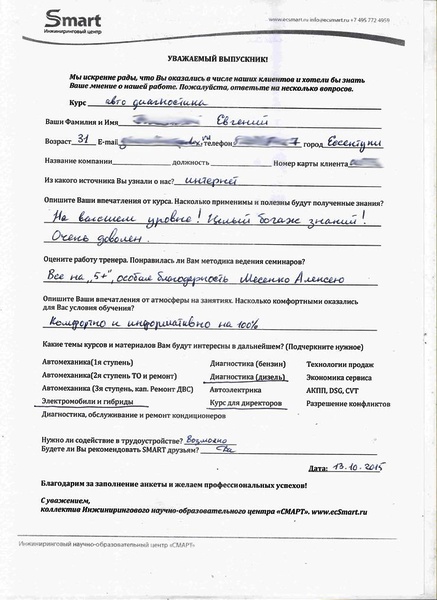 Smart
Инжиниринговый центр
www.ecsmart.ru info@ecsmart.ru +7 495 772 4959
УВАЖАЕМЫЙ ВЫПУСКНИК!
Мы искренне рады, что Вы оказались в числе наших клиентов и хотели бы знать
Ваше мнение о нашей работе. Пожалуйста, ответьте на несколько вопросов.
Курс авто диагностика
Ваши Фамилия и Имя Евгений
Возраст 31 E-mail телефон 7 город Ессентуки
Название компании должность Номер карты клиента
Из какого источника Вы узнали о нас? интернет
Опишите Ваши впечатления от курса. Насколько применимы и полезны будут полученные знания?
На высшем уровне! Целый богаж знаний!
Очень доволен.
Оцените работу тренера. Понравилась ли Вам методика ведения семинаров?
Все на „5+", особая благодарность Месенко Алексею
Опишите Ваши впечатления от атмосферы на занятиях. Насколько комфортными оказались
для Вас условия обучения?
Комфортно и информативно на 100%
Какие темы курсов и материалов Вам будут интересны в дальнейшем? (Подчеркните нужное)
Автомеханика(1я ступень) Диагностика (бензин) Технологии продаж
Автомеханика(2я ступень ТО и ремонт) Диагностика (дизель) Экономика сервиса
Автомеханика (3я ступень, кап. Ремонт ДВС) Автоэлектрика АКПП, DSG, CVT
Электромобили и гибриды Курс для директоров Разрешение конфликтов
Диагностика, обслуживание и ремонт кондиционеров
Нужно ли содействие в трудоустройстве? Возможно
Будете ли Вы рекомендовать SMART друзьям? Да
Дата: 13.10.2015
Благодарим за заполнение анкеты и желаем профессиональных успехов!
С уважением,
коллектив Инжинирингового научно-образовательного центра «СМАРТ». www.ecSmart.ru
Инжиниринговый научно-образовательный центр «СМАРТ»